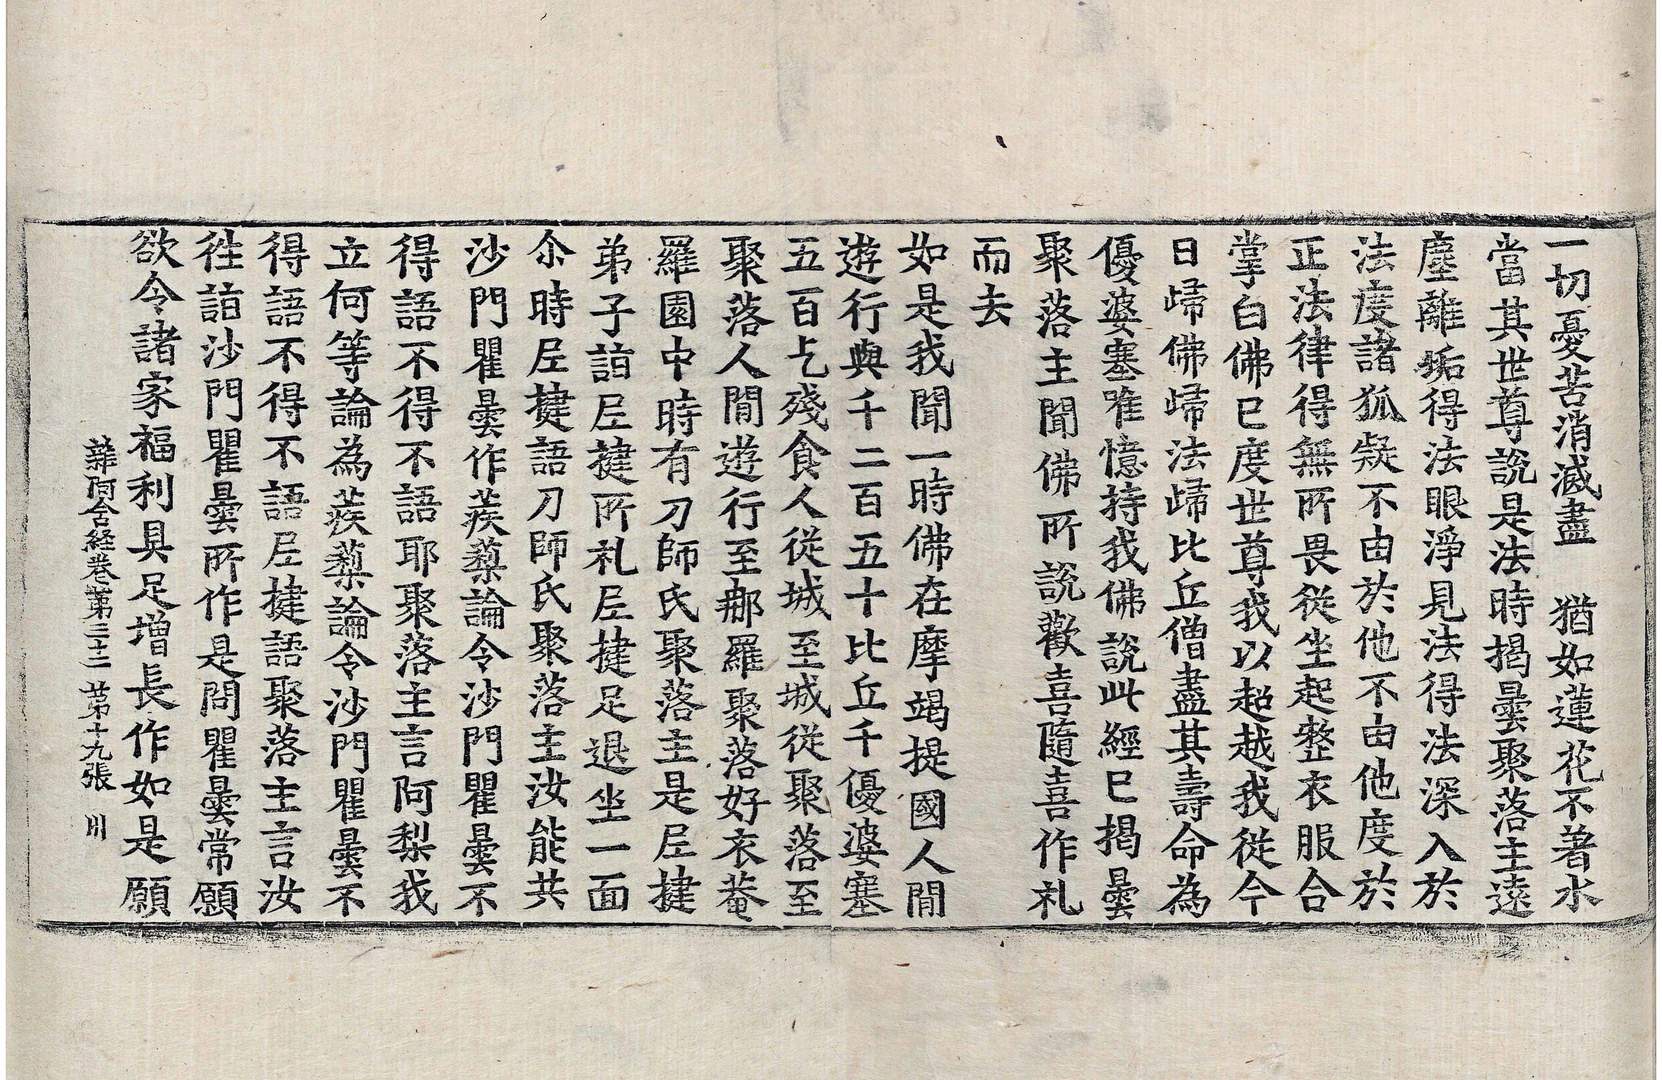 一切憂苦消滅盡　猶如蓮花不著水
當其世尊說是法時揭曇聚落主遠
塵離垢得法眼淨見法得法深入於
法度諸狐疑不由於他不由他度於
正法律得無所畏從坐起整衣服合
掌白佛已度世尊我以超越我從今
日歸佛歸法歸比丘僧盡其壽命為
優婆塞唯憶持我佛說此經已揭曇
聚落主聞佛所說歡喜隨喜作礼
而去
如是我聞一時佛在摩竭提國人間
遊行與千二百五十比丘千優婆塞
五百乞殘食人從城至城從聚落至
聚落人間遊行至那羅聚落好衣菴
羅園中時有刀師氏聚落主是尼揵
弟子詣尼揵所礼尼揵足退坐一面
尒時尼揵語刀師氏聚落主汝能共
沙門瞿曇作蒺䔧論令沙門瞿曇不
得語不得不語耶聚落主言阿梨我
立何等論為蒺䔧論令沙門瞿曇不
得語不得不語尼揵語聚落主言汝
往詣沙門瞿曇所作是問瞿曇常願
欲令諸家福利具足增長作如是願
雜阿含経卷第三十二　第十九張　川